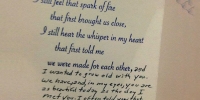 I still feel that spark of fire
that first brought us close,
I still hear the whisper in my heart
that first told me
we were made for each other, and
I wanted to grow old with you.
We have, and, in my eyes, you are
as beautiful today as the day I
met you.